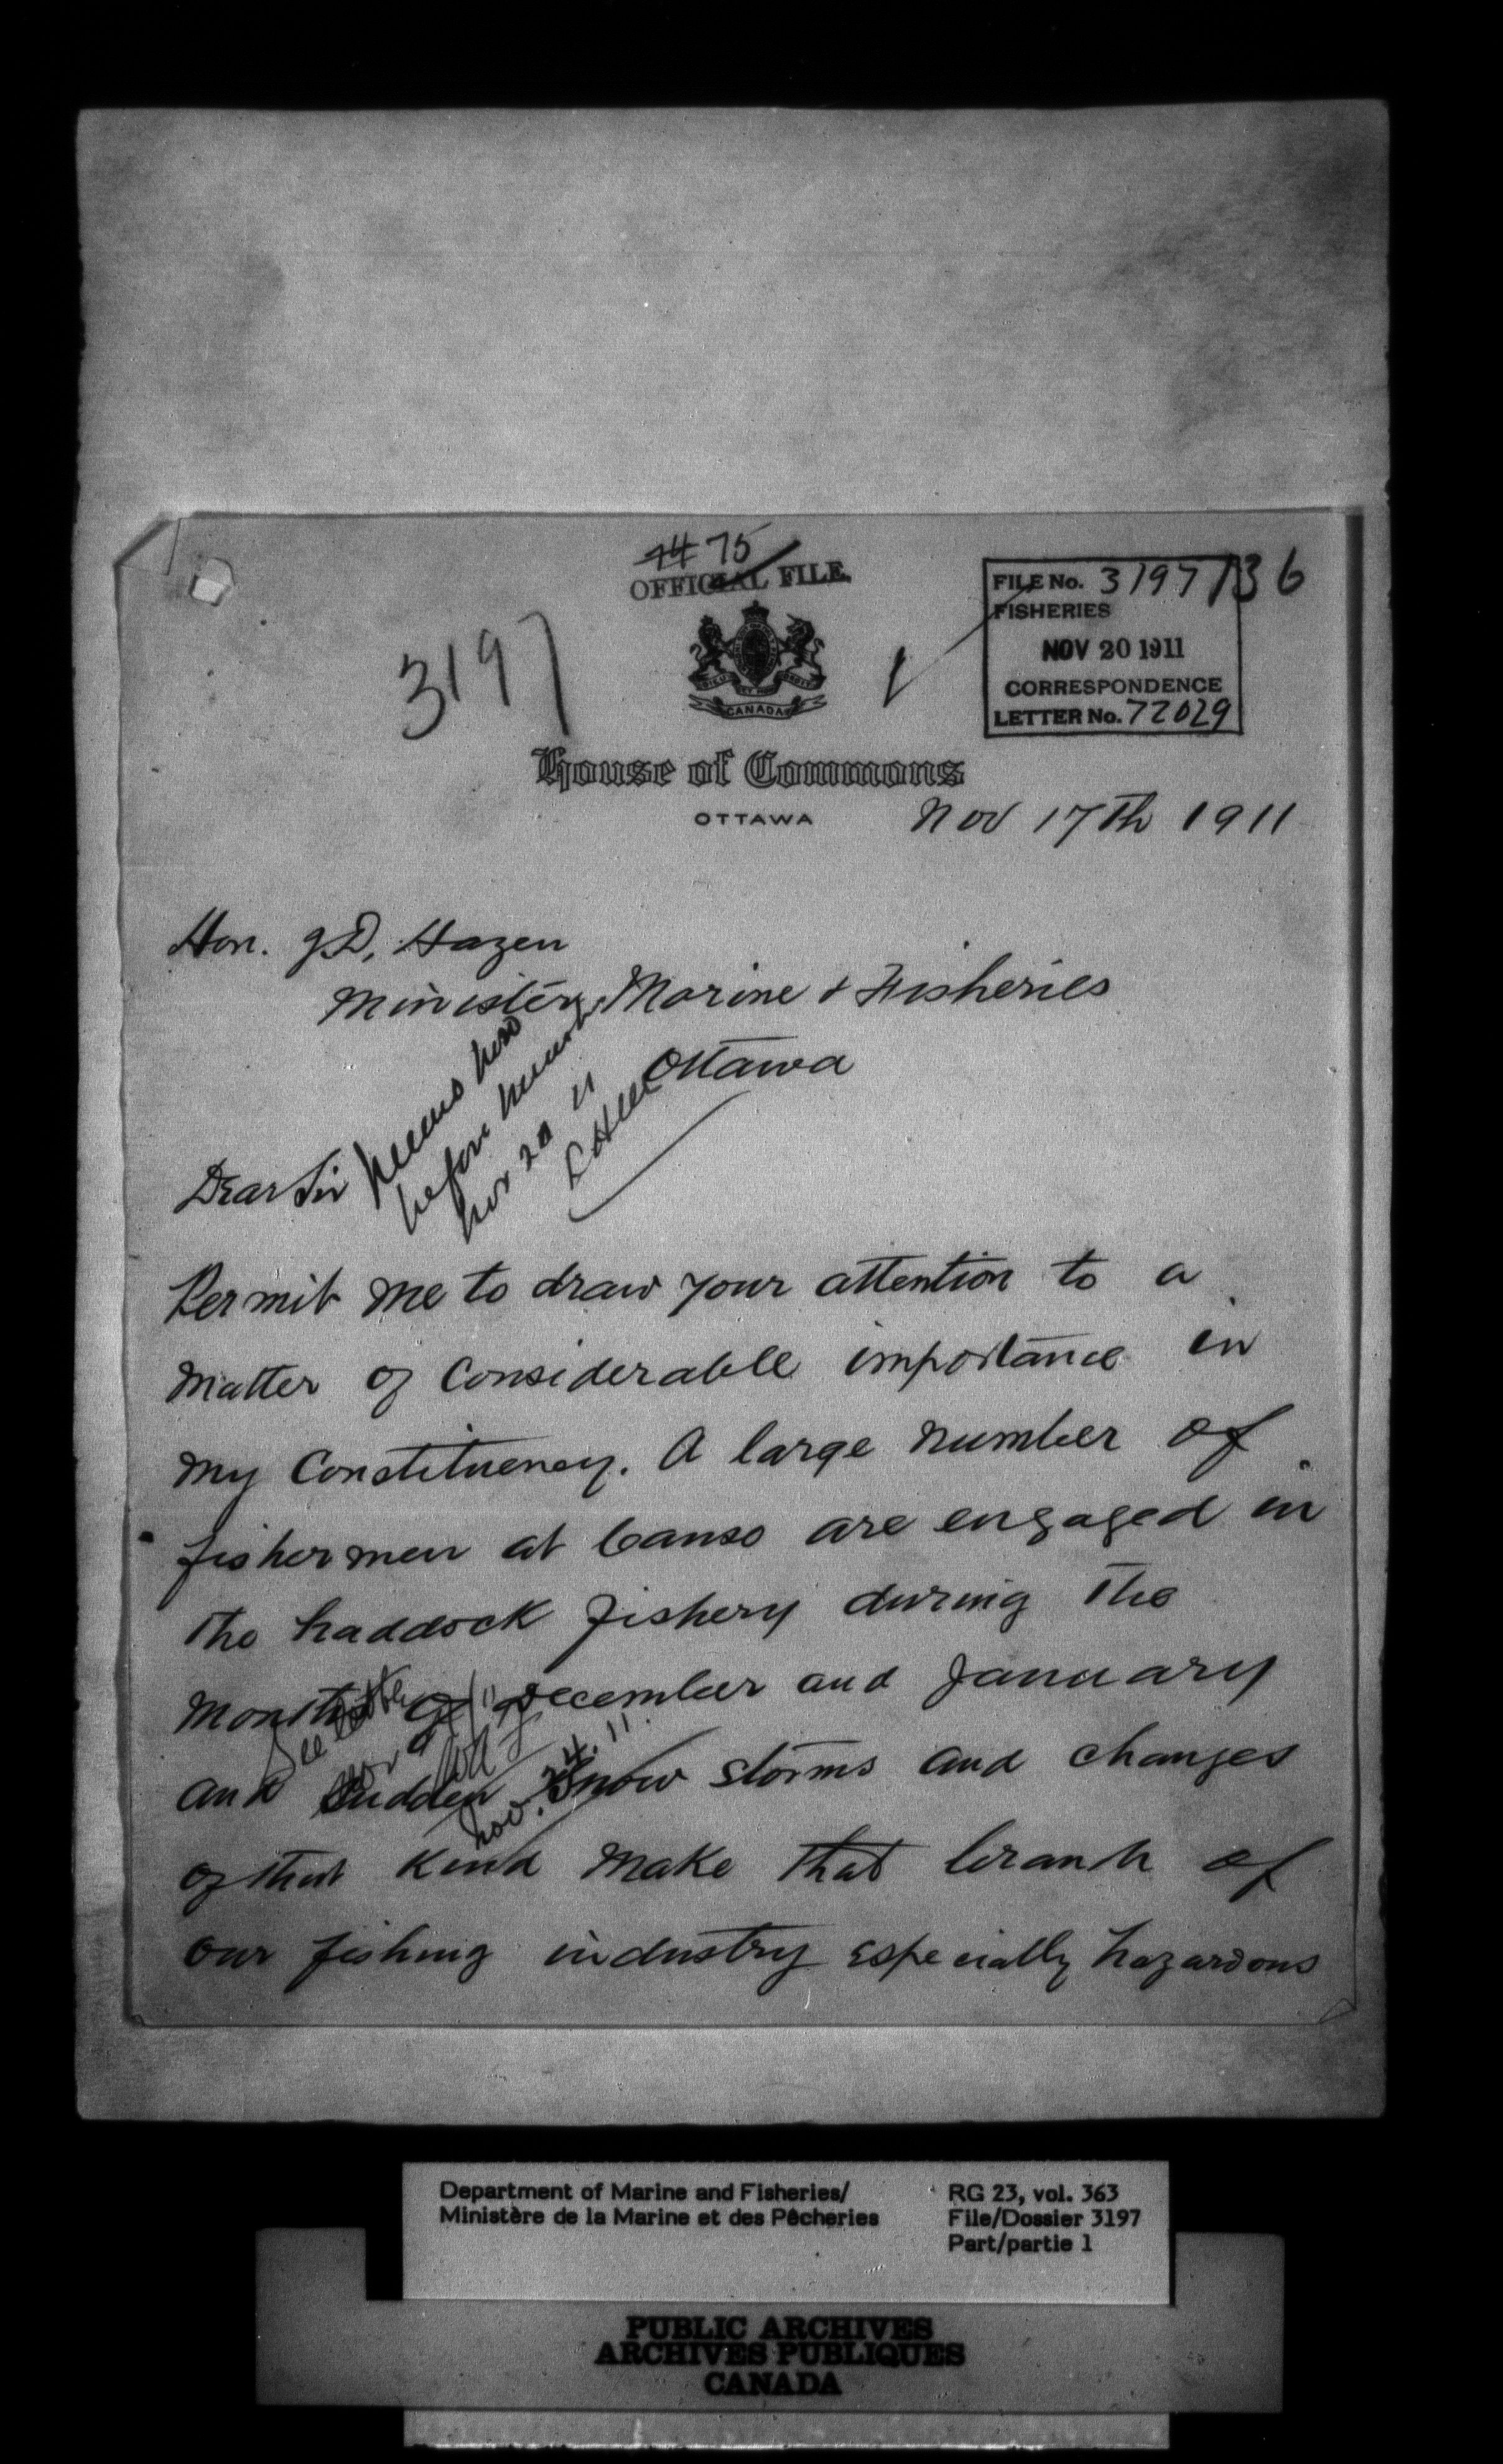 4475
OFFICIAL FILE.
3197
FILE No. 3197/36
FISHERIES
NOV 20 1911
CORRESPONDENCE
LETTER No. 72029
DIEU ET MON DROIT
CANADA
House of Commons
OTTAWA
Nov 17th 1911
Hon. J.D. Hazen
Minister Marine & Fisheries
Ottawa
Memo
before
Nov 20 11
Dear Sir
Permit me to draw your attention to a
matter of considerable importance in
my Constituency. A large number of
fishermen at Canso are engaged in
the haddock fishery during the
months of December and January
See
Nov. 24. 11.
and sudden snow storms and changes
of that kind make that branh of
our fishing industry especially hazardous
Department of Marine and Fisheries/
Ministère de la Marine et des Pêcheries
RG 23, vol. 363
File/Dossier 3197
Part/partie 1
PUBLIC ARCHIVES
ARCHIVES PUBLIQUES
CANADA